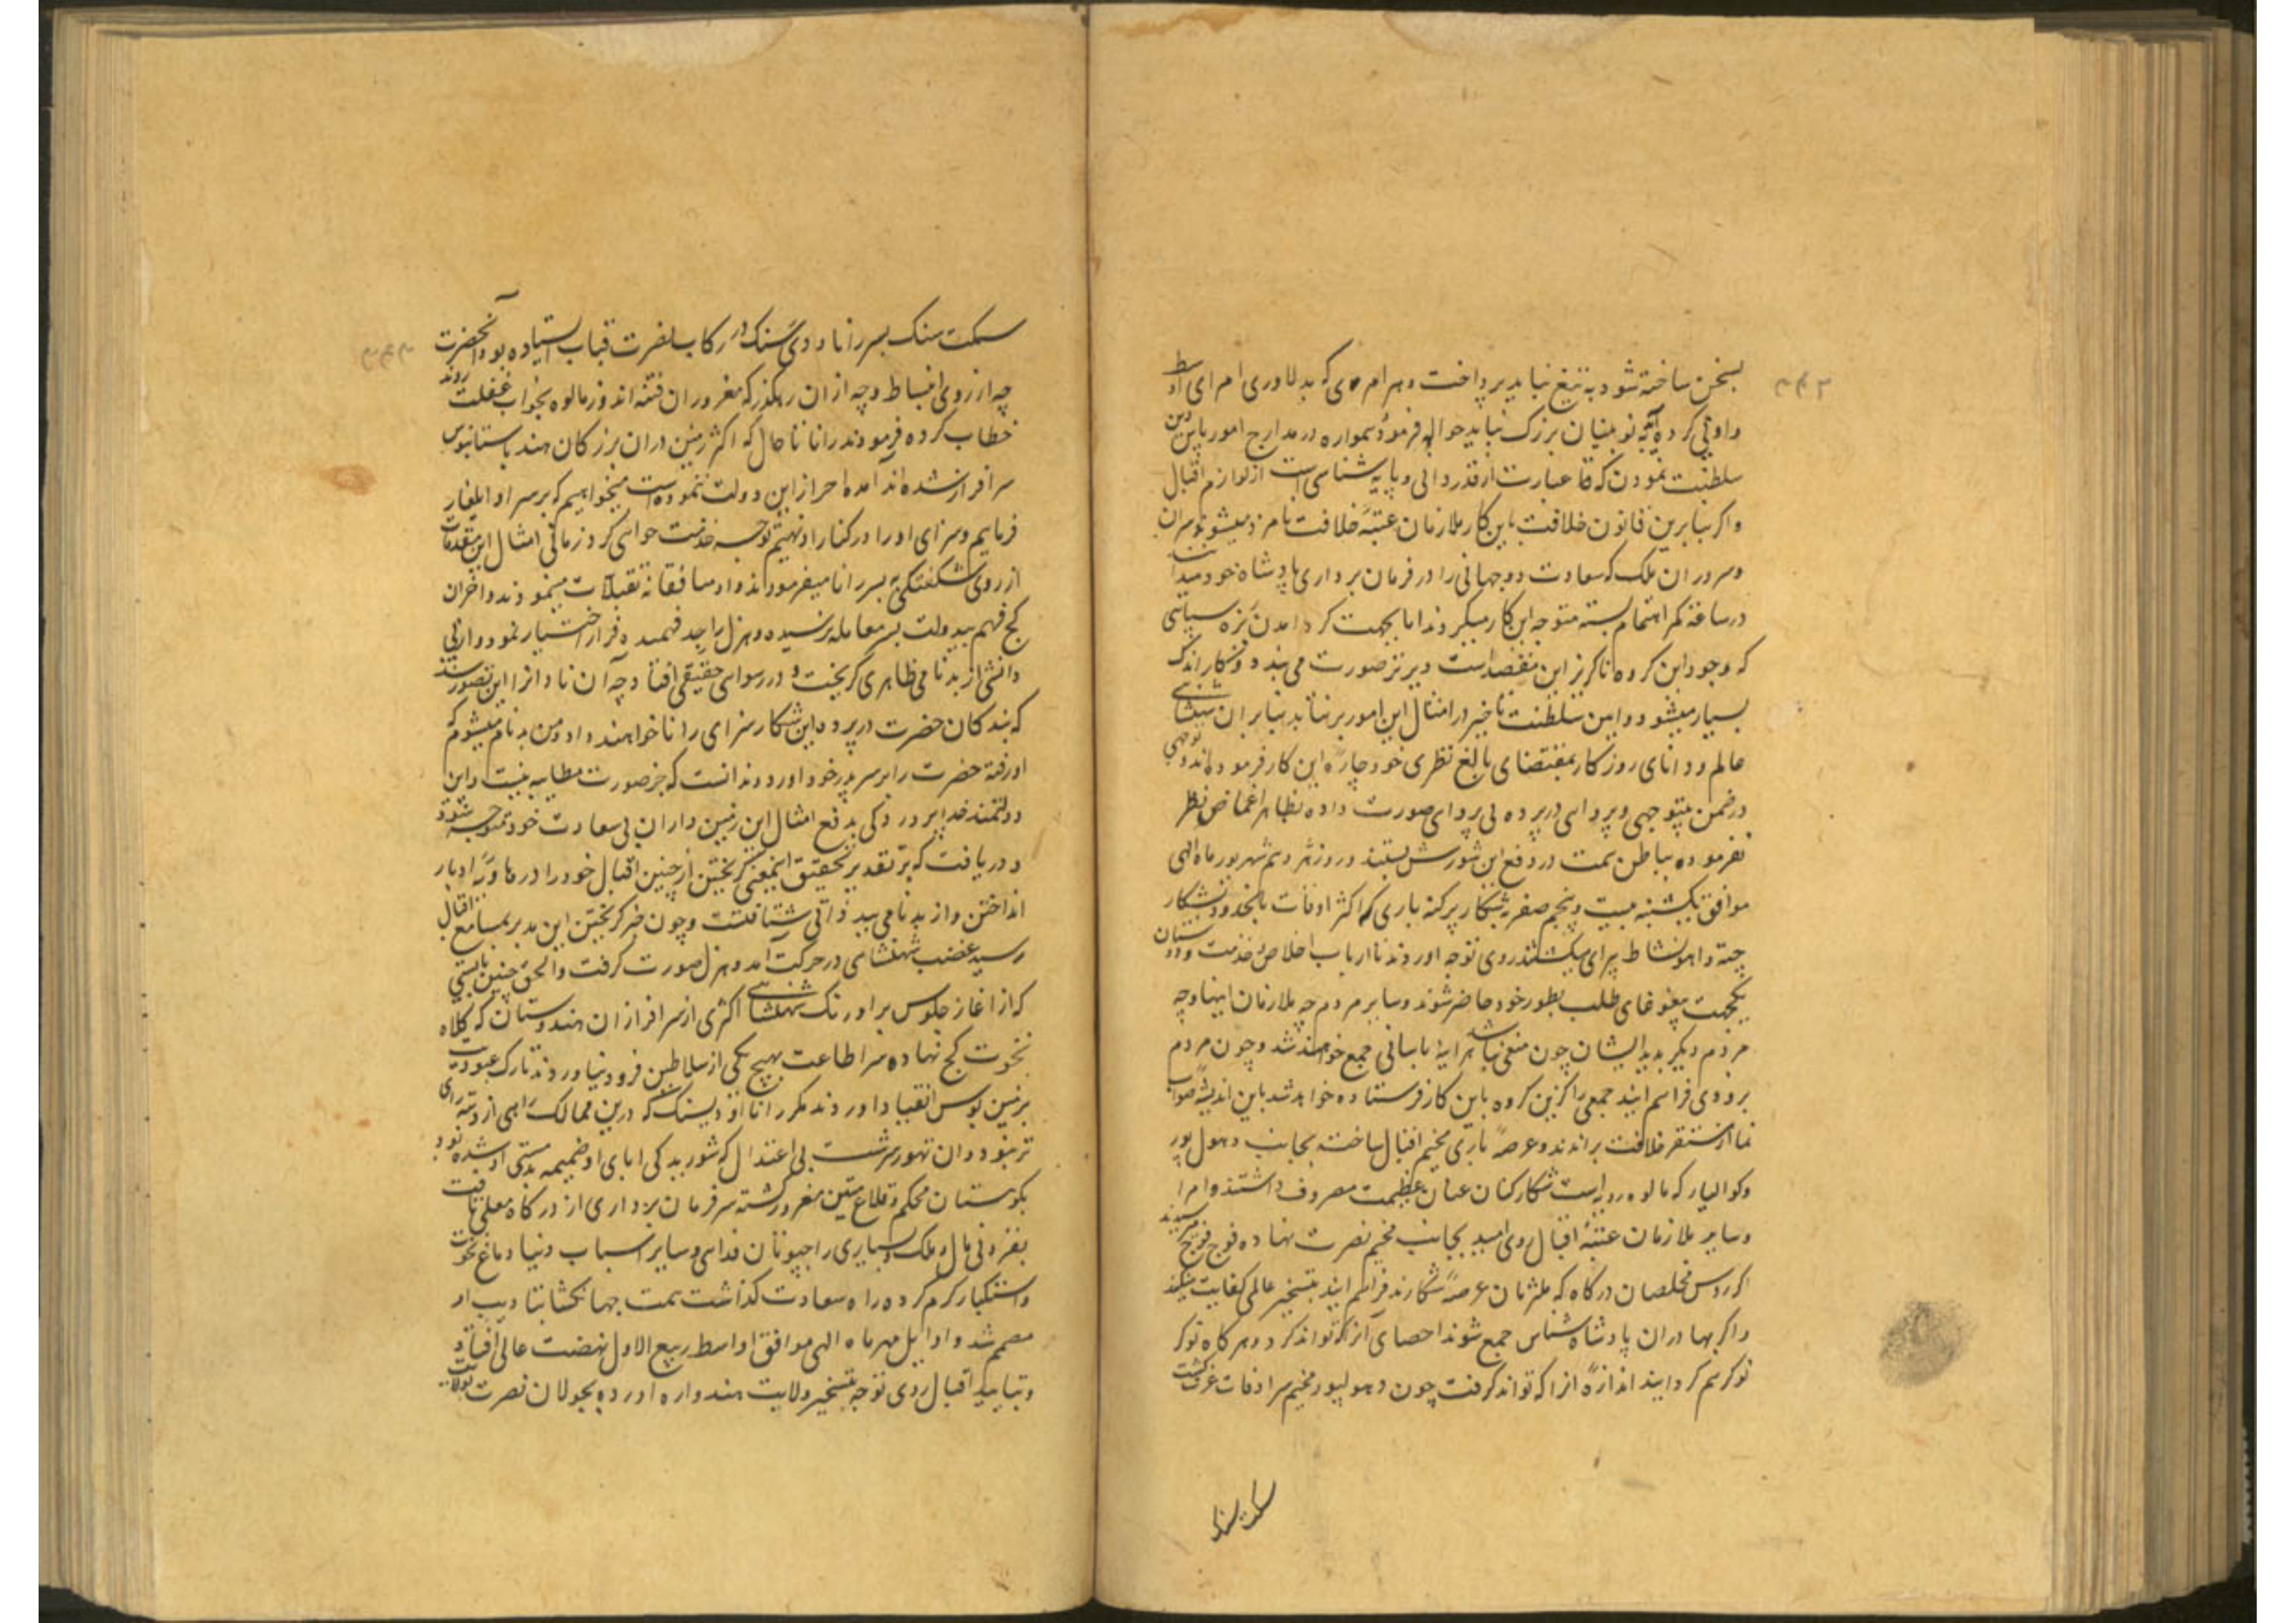 ۴۴۲
بسخن ساخته شود به تیغ نباید پرداخت و هر امری که بدلاوری امرای اوسط
و ادنی کرده آید نوئینان بزرگ نباید حواله فرمود همواره در مدارج امور پاس این
سلطنت نمودن که عبارت از قدردانی و پایه شناسی است از لوازم اقبال
و اگر بنا برین قانون خلافت باین کار ملازمان عتبه خلافت نامزد میشوند سران
و سروران ملک که سعادت دوجهانی را در فرمان برداری پادشاه خود میدانند
در ساعت کمر اهتمام بسته متوجه این کار میگردند اما بجهت گرد آمدن نره سپاهی
که وجود این گروه ناگزیر این مقصد است دیرتر صورت می بندد و کار اندک
بسیار میشود و آیین سلطنت تاخیر در امثال این امور بر نتابد بنا بر آن شهنشاهی
عالم و دانای روزگار بمقتضای بالغ نظری خود چاره این کار فرموده اند و
در ضمن بیتوجهی توجهی و پروائی در پرده بی پروای صورت داده بظاهر اغماض نظر
بفرموده بباطن همت در دفع این شورش بستند و روز شهریور ماه الهی
موافق یکشنبه بیست و پنجم صفر به شکار پرگنه باری که اکثر اوقات بانحدود بشکار
چیته و آهو نشاط پیرای میکشتند روی توجه آوردند تا ارباب اخلاص خدمت دوستان
یکجهت بیغوغای طلب بطور خود حاضر شوند و سایر مردم چه ملازمان اینها و چه
مردم دیگر بدید ایشان چون منعی نباشد هر آینه باسانی جمع خواهند شد و چون مردم
بزودی فراهم آیند جمعی را کزین کروه باین کار فرستاده خواهد شد باین اندیشه صواب
نما از مستقر خلافت براندند و عرصه باری مخیم اقبال ساخته بجانب دهول پور
و کوالیار که مالوه رویه است شکار کنان عنان عظیمت مصروف داشتند و امرا
و سایر ملازمان عتبه اقبال روی امید بجانب مخیم نصرت نهاده فوج فوج میرسیدند
اگر روس مخلصان درکاه که ملتزمان عرصه شکارند فراهم آیند بتسخیر عالمی کفایت میکنند
و اگر بهادران پادشاه شناس جمع شوند احصای آنرا که تواند کرد و هرگاه نوکر
نوکر هم گرد آیند اندازه آنرا که تواند گرفت چون دهولپور مخیم سرادقات عزت گشت
سکت سنک
۴۴۳
سکت سنک پسر رانا اودی سنک در رکاب نصرت قباب ایستاده بود آنحضرت
چه از روی انبساط و چه از آن رهگذر که مغروران فتنه اندوز مالوه بخواب غفلت روند
خطاب کرده فرمودند رانا تا حال که اکثر زمین داران بزرگان هند باستانبوس
سرافراز شده اند آمده احراز این دولت ننموده است میخواهیم که بر سر او ایلغار
فرمایم و سزای او را در کنار او نهیم تو چه خدمت خواهی کرد زمانی امثال این مقدمات
از روی شکفتگی به پسر رانا میفرمودند و او منافقانه تقبلات مینمودند و آخر آن
کج فهم بیدولت بسر معامله نرسیده و هزل را جد فهمیده فرار اختیار نمود و از بی
دانشی از بدنامی ظاهری گریخت و در رسوائی حقیقی افتاد چه آن نادانرا این تصور شد
که بندگان حضرت در پرده این شکار سزای رانا خواهند داد و من بدنام میشوم که
او رفته حضرت را بر سر پدر خود آورد و ندانست که جز صورت مطایبه نیست و این
دولتمند خداپرور کی بدفع امثال این زمین داران بی سعادت خود متوجه شود
و دریافت که بر تقدیر تحقیق اینمعنی گریختن از چنین اقبال خود را در هاویه ادبار
انداختن و از بدنامی به بدذاتی شتافتنست و چون خبر گریختن این مدبر بمسامع اقبال
رسید غضب شهنشاهی در حرکت آمد و هزل صورت گرفت و الحق چنین بایستی
که از آغاز جلوس بر اورنگ شهنشاهی اکثری از سرافرازان هندوستان که کلاه
نخوت کج نهاده سر اطاعت بهیچ یکی از سلاطین فرود نیاوردند تارک عبودیت
بزمین بوس انقیاد آوردند مگر رانا اودیسنک که درین ممالک راهی از و تیره رای
تر نبود و آن تهور سرشت بی اعتدال که شوریدگی آبای او ضمیمه بدمستی او شده بود
بکوهستان محکم و قلاع متین مغرور گشته سر فرمان برداری از درگاه معلی تافت
بفزونی مال و ملک و بسیاری راجپوتان فدائی و سایر اسباب دنیا دماغ نخوت
و استکبار گرم کرده راه سعادت گذاشت همت جهانگشا بتادیب او
مصمم شد و اوایل مهر ماه الهی موافق اواسط ربیع الاول نهضت عالی افتاد
و بتایید اقبال روی توجه بتسخیر ولایت هندواره آورده بجولان نصرت